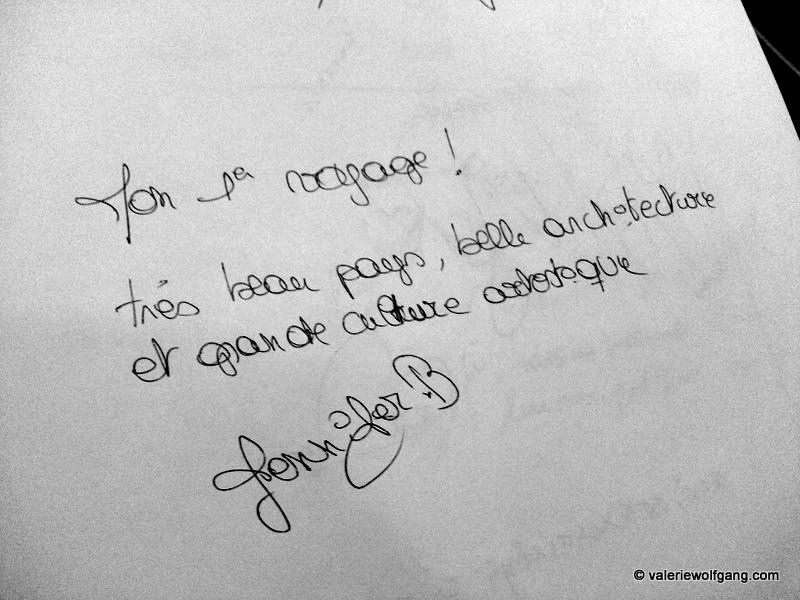 Mon 1er voyage !
très beau pays, belle architecture
et grande culture artistique
Jennifer.B
© valeriewolfgang.com